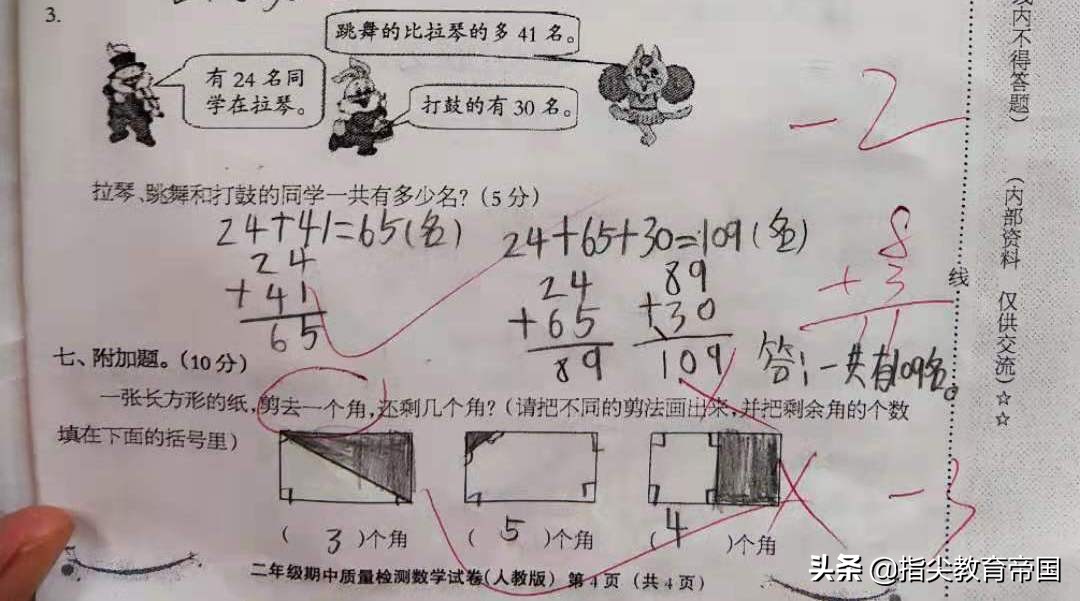 3.
跳舞的比拉琴的多 41 名。
有 24 名同
学在拉琴。
打鼓的有 30 名。
-2
拉琴、跳舞和打鼓的同学一共有多少名？(5 分)
24+41=65(名)
24
+41
65
24+65+30=109(名)
24
+65
89
89
+30
109
8
+3
11
答：一共有109名。
七、附加题。(10 分)
一张长方形的纸,剪去一个角,还剩几个角?(请把不同的剪法画出来,并把剩余角的个数
填在下面的括号里)
-3
( 3 )个角 ( 5 )个角 ( 4 )个角
二年级期中质量检测数学试卷(人教版) 第 4 页 (共 4 页)
内不得答题)
(内部资料 仅供交流)☆☆
线
头条 @指尖教育帝国